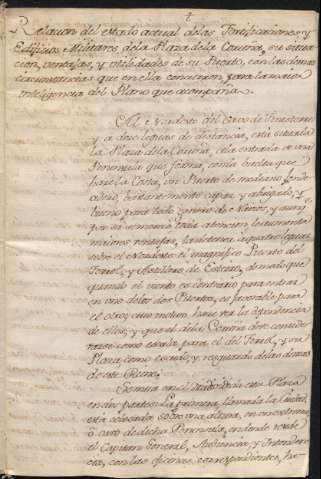 Relacion del estado actual delas Fortificaciones y
Edificios Militares dela Plaza dela Coruña, su situa
cion, ventajas, y utilidades de su Puerto, con las demas
circunstancias que en ella concurren, para la maior
inteligencia del Plano que acompaña.
Al Nordeste del Cavo de Finisterre
y a doze leguas de distancia, está situada
la Plaza dela Coruña, ala entrada de una
Peninsula que forma, con la
haze la Costa, un Puerto de mediano fondo
abrigado, y
bueno para todo genero de Navios, y aunq
por si merecia toda atencion,
maiores ventajas, la de tener a quatro leguas
entre el Nordeste el magnifico Puerto del
Ferrol, y Astillero de Esteiro, demodo que
quando el viento es contrario para entrar
en uno delos dos Puertos, es favorable para
el otro; cuio motivo haze ver la dependencia
de ellos, y que el dela Coruña deve conside
rarse como escala para el del Ferrol, y su
Plaza, como escudo, y resguardo delas demas
de este Reino.
esta Plaza
en dos partes: La primera, llamada la Ciudad,
está colocada sobre una altura, en un extremo
ó cavo de dicha Peninsula, en donde reside
el Capitan General, Audiencia, y Intenden
cia, con las oficinas correspondientes, ha-